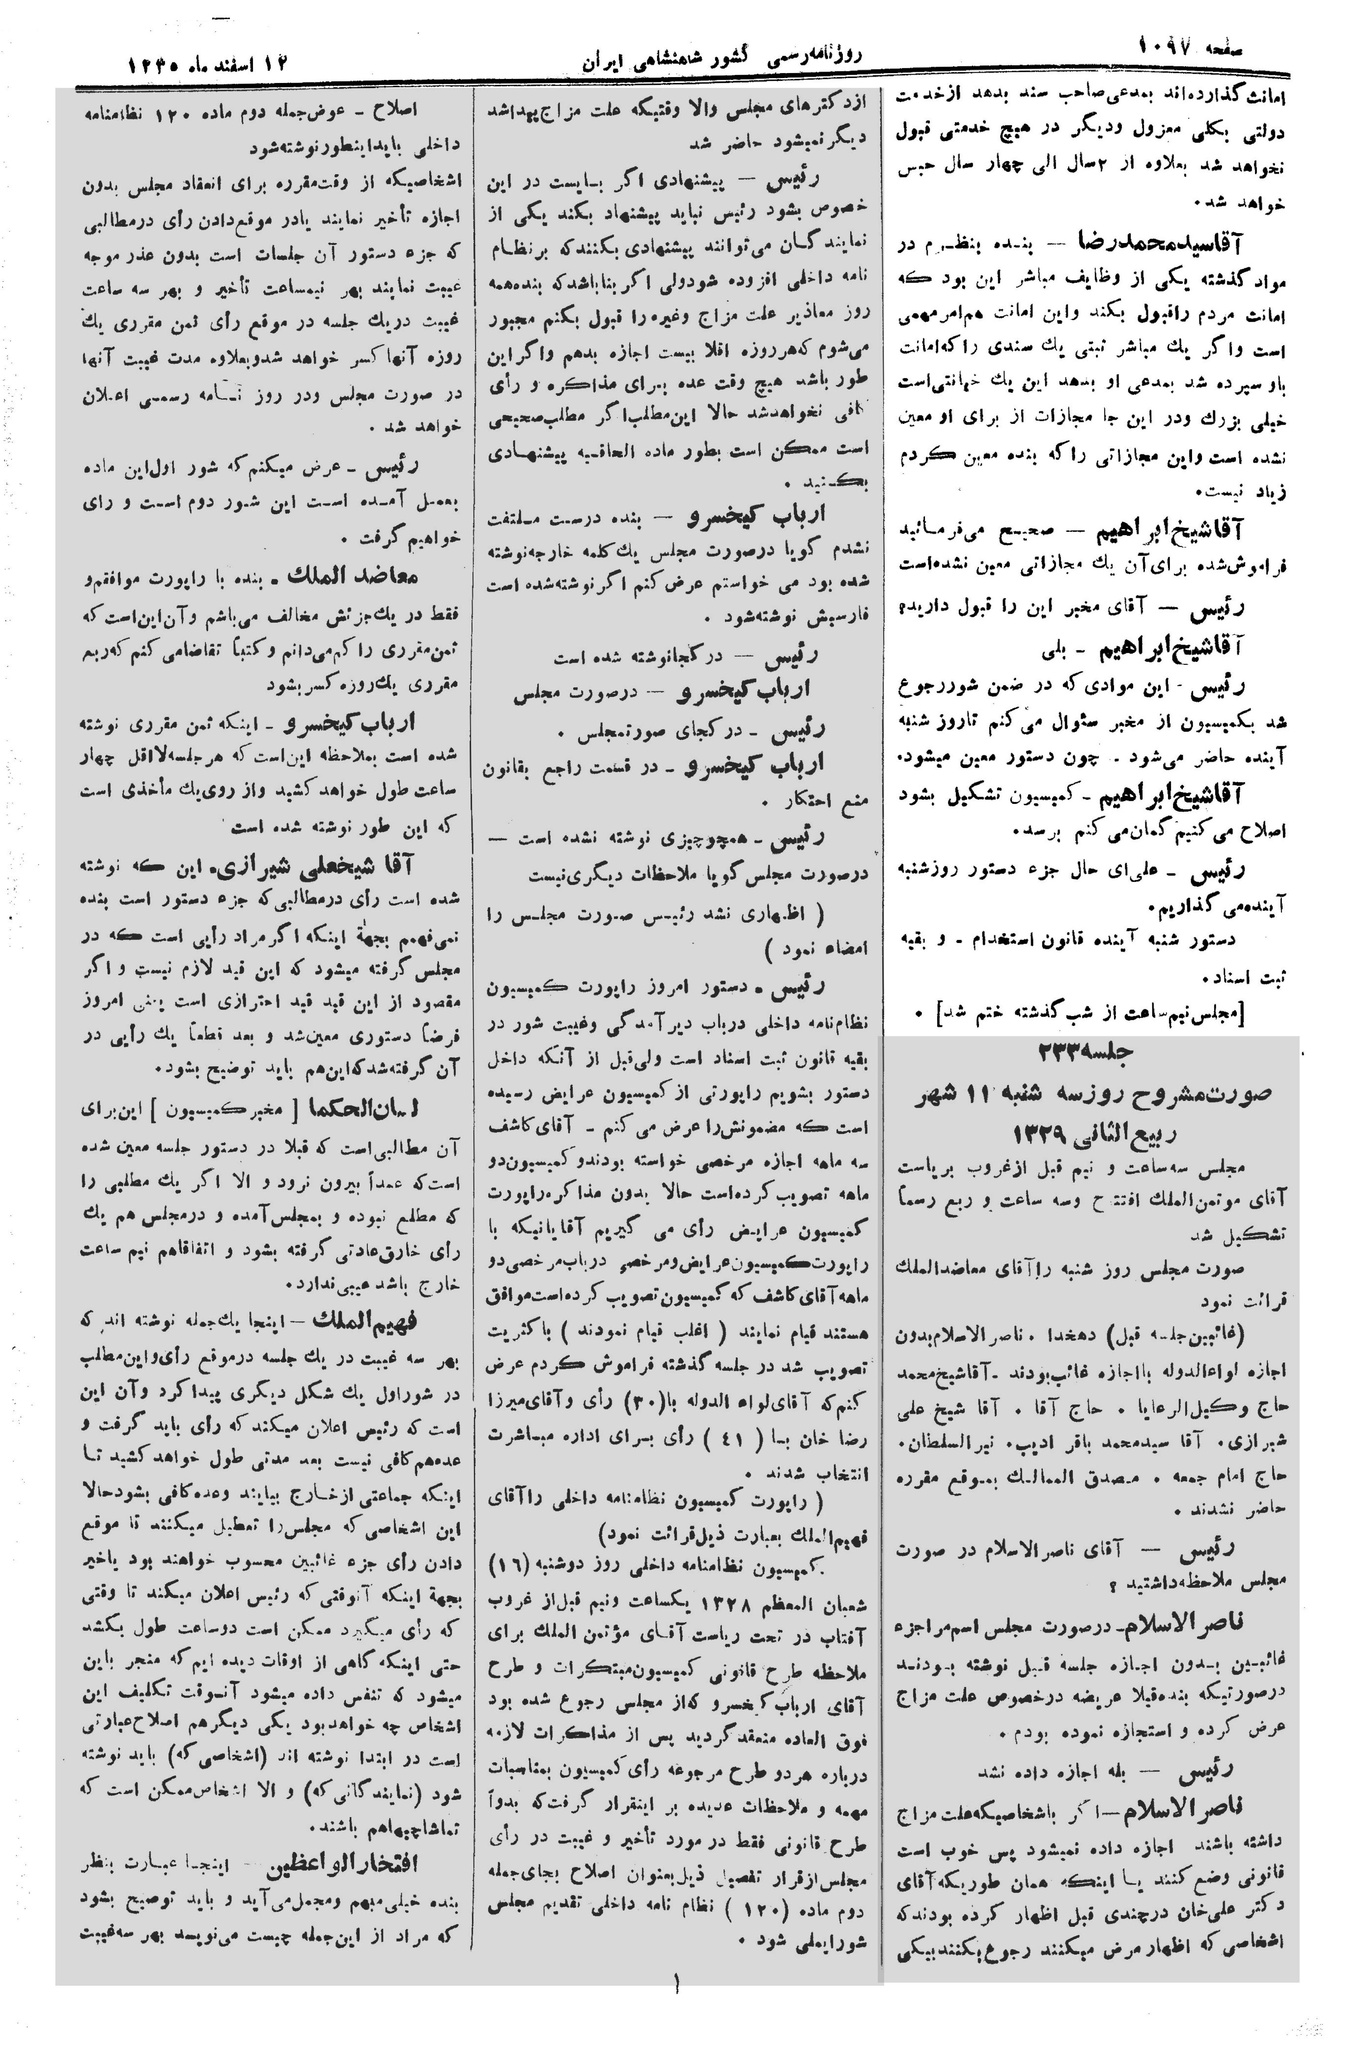 صفحه ۱۰۹۷
روزنامه رسمی کشور شاهنشاهی ایران
۱۲ اسفند ماه ۱۳۳۵
امانت گذارده‌اند بمدعی صاحب سند بدهد از خدمت
دولتی بکلی معزول ودیگر در هیچ خدمتی قبول
نخواهد شد بعلاوه از ۲ سال الی چهار سال حبس
خواهد شد.
آقا سید محمد رضا — بنده بنظرم در
مواد گذشته یکی از وظایف مباشر این بود که
امانت مردم را قبول بکند واین امانت هم امر مهمی
است واگر یك مباشر ثبتی یك سندی را که امانت
باو سپرده شد بمدعی او بدهد این یك خیانتی است
خیلی بزرك ودر این جا مجازات از برای او معین
نشده است واین مجازاتی را که بنده معین کردم
زیاد نیست.
آقا شیخ ابراهیم — صحیح می‌فرمائید
فراموش شده برای آن یك مجازاتی معین نشده است
رئیس — آقای مخبر این را قبول دارید؟
آقا شیخ ابراهیم - بلی
رئیس - این موادی که در ضمن شور رجوع
شد بکمیسیون از مخبر سئوال می‌کنم تا روز شنبه
آینده حاضر می‌شود - چون دستور معین میشود.
آقا شیخ ابراهیم - کمیسیون تشکیل بشود
اصلاح می‌کنیم گمان می‌کنم برسد.
رئیس - علی‌ای حال جزء دستور روز شنبه
آینده می‌گذاریم.
دستور شنبه آینده قانون استخدام - و بقیه
ثبت اسناد.
[مجلس نیم ساعت از شب گذشته ختم شد] .
جلسه ۲۳۳
صورت مشروح روز سه شنبه ۱۱ شهر
ربیع الثانی ۱۳۲۹
مجلس سه ساعت و نیم قبل از غروب بریاست
آقای موتمن الملك افتتح وسه ساعت و ربع رسماً
تشکیل شد
صورت مجلس روز شنبه را آقای معاضد الملك
قرائت نمود
(غائبین جلسه قبل) دهخدا . ناصر الاسلام بدون
اجازه لواء الدوله با اجازه غائب بودند - آقا شیخ محمد
حاج وکیل الرعایا . حاج آقا . آقا شیخ علی
شیرازی. آقا سید محمد باقر ادیب. نیر السلطان.
حاج امام جمعه . مصدق الممالك بموقع مقرره
حاضر نشدند .
رئیس — آقای ناصر الاسلام در صورت
مجلس ملاحظه داشتید ؟
ناصر الاسلام - در صورت مجلس اسم مرا جزء
غائبین بدون اجازه جلسه قبل نوشته بودند
در صورتیکه بنده قبلا عریضه در خصوص علت مزاج
عرض کرده و استجازه نموده بودم .
رئیس — بله اجازه داده نشد
ناصر الاسلام — اگر باشخاصیکه علت مزاج
داشته باشند اجازه داده نمیشود پس خوب است
قانونی وضع کنند یا اینکه همان طوریکه آقای
دکتر علی خان در چندی قبل اظهار کرده بودند که
اشخاصی که اظهار مرض میکنند رجوع بکنند بیکی
از دکترهای مجلس والا وقتیکه علت مزاج پیدا شد
دیگر نمیشود حاضر شد
رئیس — پیشنهادی اگر بایست در این
خصوص بشود رئیس نباید پیشنهاد بکند یکی از
نمایندگان می‌توانند پیشنهادی بکنند که بر نظام
نامه داخلی افزوده شود ولی اگر بنا باشد که بنده همه
روز معاذیر علت مزاج وغیره را قبول بکنم مجبور
می‌شوم که هر روزه اقلا بیست اجازه بدهم واگر این
طور باشد هیچ وقت عده برای مذاکره و رأی
کافی نخواهد شد حالا این مطلب اگر مطلب صحیحی
است ممکن است بطور ماده الحاقیه پیشنهادی
بکنید .
ارباب کیخسرو — بنده درست ملتفت
نشدم گویا در صورت مجلس یك کلمه خارجه نوشته
شده بود می خواستم عرض کنم اگر نوشته شده است
فارسیش نوشته شود .
رئیس — در کجا نوشته شده است
ارباب کیخسرو — در صورت مجلس
رئیس - در کجای صورتمجلس .
ارباب کیخسرو - در قسمت راجع بقانون
منع احتکار .
رئیس - همچو چیزی نوشته نشده است —
در صورت مجلس گویا ملاحظات دیگری نیست
( اظهاری نشد رئیس صورت مجلس را
امضاء نمود )
رئیس - دستور امروز راپورت کمیسیون
نظام‌نامه داخلی در باب دیر آمدگی وغیبت شور در
بقیه قانون ثبت اسناد است ولی قبل از آنکه داخل
دستور بشویم راپورتی از کمیسیون عرایض رسیده
است که مضمونش را عرض می کنم - آقای کاشف
سه ماهه اجازه مرخصی خواسته بودند و کمیسیون دو
ماهه تصویب کرده است حالا بدون مذاکره راپورت
کمیسیون عرایض رأی می گیریم آقایانیکه با
راپورت کمیسیون عرایض و مرخصی در باب مرخصی دو
ماهه آقای کاشف که کمیسیون تصویب کرده است موافق
هستند قیام نمایند ( اغلب قیام نمودند ) با کثریت
تصویب شد در جلسه گذشته فراموش کردم عرض
کنم که آقای لواء الدوله با (۳۰) رأی و آقای میرزا
رضا خان با ( ٤۱ ) رأی برای اداره مباشرت
انتخاب شدند .
( راپورت کمیسیون نظامنامه داخلی را آقای
فهیم الملك بعبارت ذیل قرائت نمود)
کمیسیون نظامنامه داخلی روز دوشنبه (۱۶)
شعبان المعظم ۱۳۲۸ یکساعت ونیم قبل از غروب
آفتاب در تحت ریاست آقای مؤتمن الملك برای
ملاحظه طرح قانونی کمیسیون مبتکرات و طرح
آقای ارباب کیخسرو که از مجلس رجوع شده بود
فوق العاده منعقد گردید پس از مذاکرات لازمه
درباره هر دو طرح مرجوعه رأی کمیسیون بمناسبات
مهمه و ملاحظات عدیده بر اینقرار گرفت که بدواً
طرح قانونی فقط در مورد تأخیر و غیبت در رأی
مجلس از قرار تفصیل ذیل بعنوان اصلاح بجای جمله
دوم ماده (۱۲۰ ) نظام نامه داخلی تقدیم مجلس
شورایملی شود .
اصلاح - عوض جمله دوم ماده ۱۲۰ نظامنامه
داخلی باید اینطور نوشته شود
اشخاصیکه از وقت مقرره برای انعقاد مجلس بدون
اجازه تأخیر نمایند یا در موقع دادن رأی در مطالبی
که جزء دستور آن جلسات است بدون عذر موجه
غیبت نمایند بهر نیمساعت تأخیر و بهر سه ساعت
غیبت در یك جلسه در موقع رأی ثمن مقرری یك
روزه آنها کسر خواهد شد و بعلاوه مدت غیبت آنها
در صورت مجلس ودر روز نامه رسمی اعلان
خواهد شد .
رئیس - عرض میکنم که شور اول این ماده
بعمل آمده است این شور دوم است و رای
خواهیم گرفت .
معاضد الملك - بنده با راپورت موافقم و
فقط در یك جزئش مخالف می‌باشم و آن این است که
ثمن مقرری را کم می‌دانم و کتباً تقاضا می کنم که ربع
مقرری یك روزه کسر بشود
ارباب کیخسرو - اینکه ثمن مقرری نوشته
شده است بملاحظه این است که هر جلسه لا اقل چهار
ساعت طول خواهد کشید واز روی یك مأخذی است
که این طور نوشته شده است
آقا شیخعلی شیرازی - این که نوشته
شده است رأی در مطالبی که جزء دستور است بنده
نمی فهمم بجهة اینکه اگر مراد رأیی است که در
مجلس گرفته میشود که این قید لازم نیست و اگر
مقصود از این قید قید احترازی است یعنی امروز
فرضاً دستوری معین شد و بعد قطعاً یك رأیی در
آن گرفته شد که این هم باید توضیح بشود.
لسان الحکما [ مخبر کمیسیون ] این برای
آن مطالبی است که قبلا در دستور جلسه معین شده
است که عمداً بیرون نرود و الا اگر یك مطلبی را
که مطلع نبوده و بمجلس آمده و در مجلس هم یك
رأی خارق عادتی گرفته بشود و اتفاقاهم نیم ساعت
خارج باشد عیبی ندارد.
فهیم الملك — اینجا یك جمله نوشته اند که
بهر سه غیبت در یك جلسه در موقع رأی و این مطلب
در شور اول یك شکل دیگری پیدا کرد و آن این
است که رئیس اعلان میکند که رأی باید گرفت و
عده هم کافی نیست بعد مدتی طول خواهد کشید تا
اینکه جماعتی از خارج بیایند وعده کافی بشود حالا
این اشخاصی که مجلس را تعطیل میکنند تا موقع
دادن رأی جزء غائبین محسوب خواهند بود یا خیر
بجهة اینکه آنوقتی که رئیس اعلان میکند تا وقتی
که رأی میگیرد ممکن است دو ساعت طول بکشد
حتی اینکه گاهی از اوقات دیده ایم که منجر باین
میشود که تنفس داده میشود آنوقت تکلیف این
اشخاص چه خواهد بود یکی دیگر هم اصلاح عبارتی
است در ابتدا نوشته اند (اشخاصی که) باید نوشته
شود (نمایندگانی که) و الا اشخاص ممکن است که
تماشاچیها هم باشند.
افتخار الواعظین - اینجا عبارت بنظر
بنده خیلی مبهم ومجمل می‌آید و باید توضیح بشود
که مراد از این جمله چیست می‌نویسد بهر سه غیبت
۱